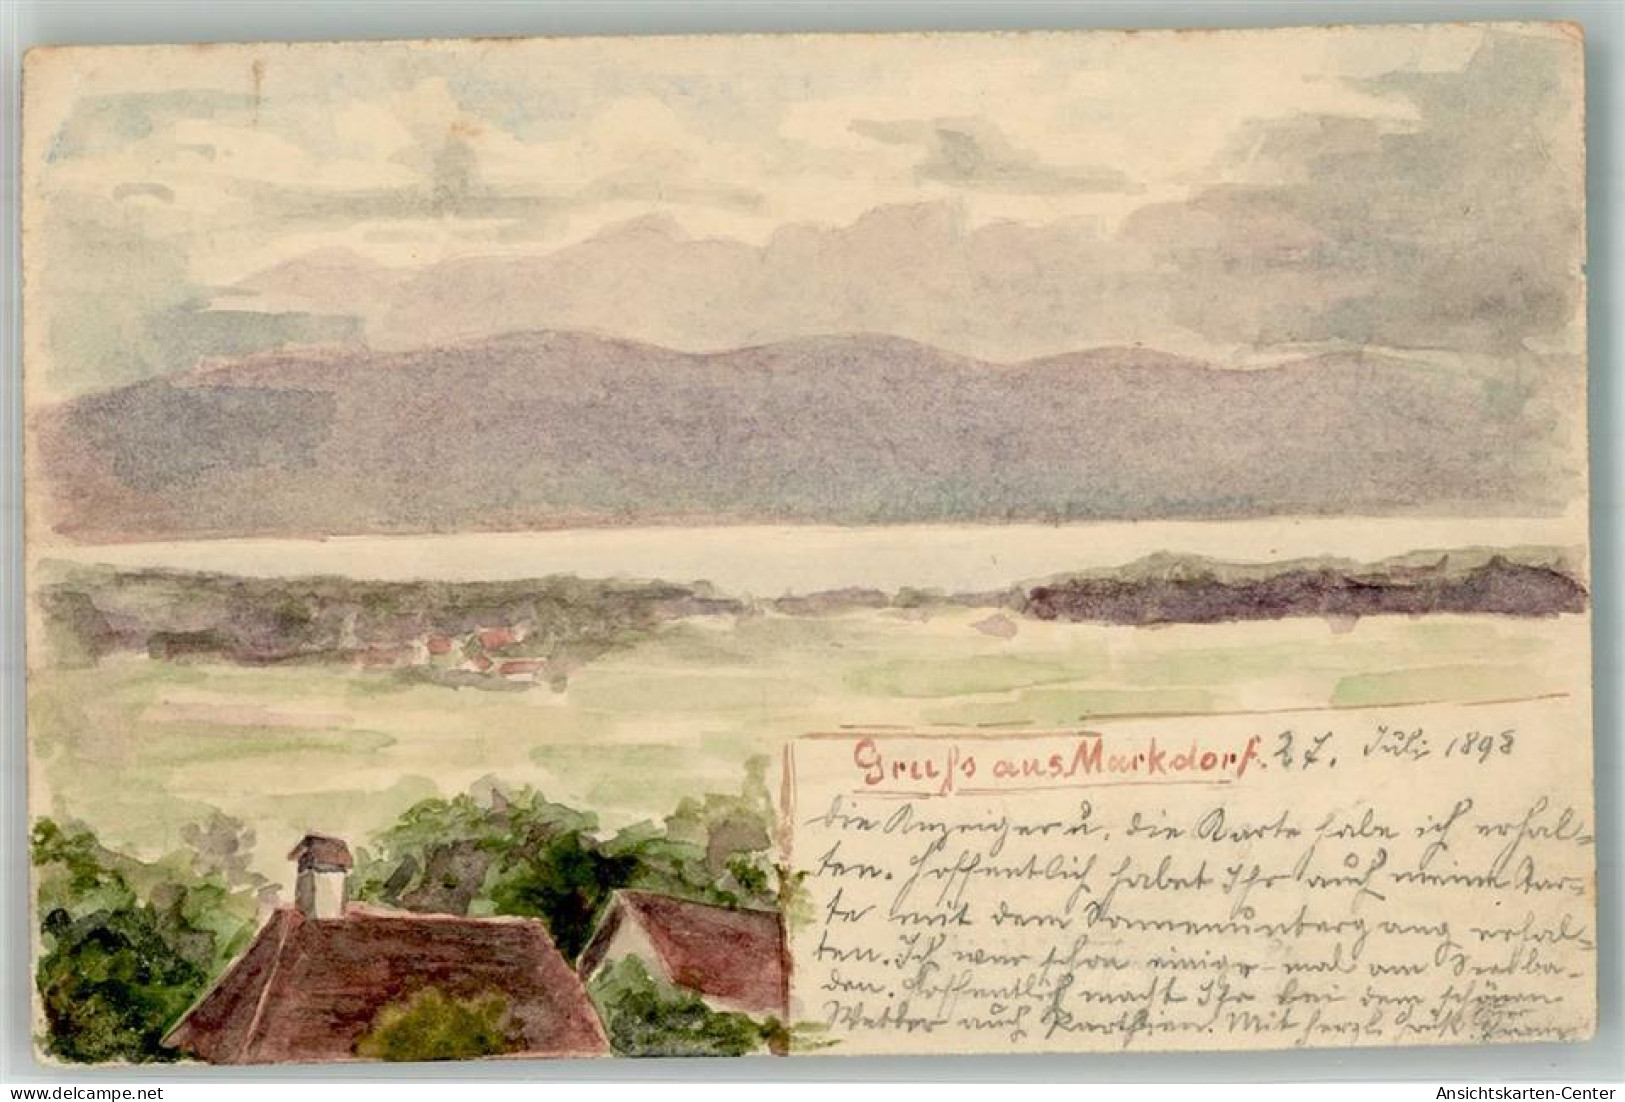 Gruß aus Markdorf. 27. Juli 1898
Die Anzeiger u. die Karte habe ich erhal-
ten. Hoffentlich habet Ihr auch meine Kar-
te mit dem Sonnenuntergang erhal-
ten. Ich war schon einige-mal am See ba-
den. Hoffentlich macht Ihr bei dem schönen
Wetter auch Parthien. Mit herzl. Gruß
delcampe.net
Ansichtskarten-Center